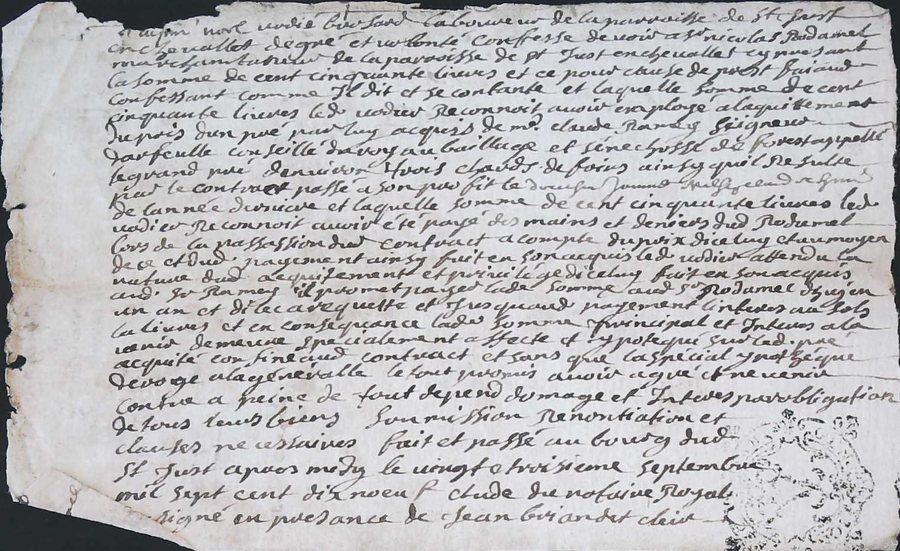 noel vodier laboureur de la parroisse de St Just
en chevallet de gré et volonté confesse devoir a Sr nicolas Rodamel
marchant de la paroisse de St Just en chevallet cy present
la somme de cent cinquante livres et ce pour cause de prest faiand
confessant comme Il dit et se contante et laquelle somme de cent
cinquante livres led vodier Reconnoit avoir employé a laquitement
du pris dun pré par luy acquis de mre claude Ramey Seigneur
darfeulle conseille du roy au bailliage et senechossé de forest appellé
le grand pré denviron trois chards de foins ainsy quil Resulte
par le contract passé a son proffit le
de lannée derniere et laquelle somme de cent cinquante livres led
vodier Reconnoit avoir été payé des mains et deniers dud Rodamel
lors de la passassion dud contract a compte du prix diceluy et au moyen
de ce et dud payement ainsy fait en son acquis led vodier attendu la
nature dud acquitement et privilege diceluy fait en son acquis
aud Sr Ramey il promet payer lad somme aud Sr Rodamel dhuy en
un an et dilec a requette et jusquaud payement linteres au sols
la livres et en consequance lad somme principal et Interes a la
venir demeure specialement affecté et ypotequé sur led pré
acquité confiné aud contract et sans que la special ypotheque
deroge a la generalle le tout promis avoir agré et ne venir
contre a peine de tout depend domage et Interes par obligation
de tous leurs biens soumission Renontiation et
clauses necessaires fait et passé au bourg dud
St Just apres midy le vingt et troisieme septembre
mil sept cent dix noeuf etude du notaire Royal
signé en presance de Jean briandet clerc